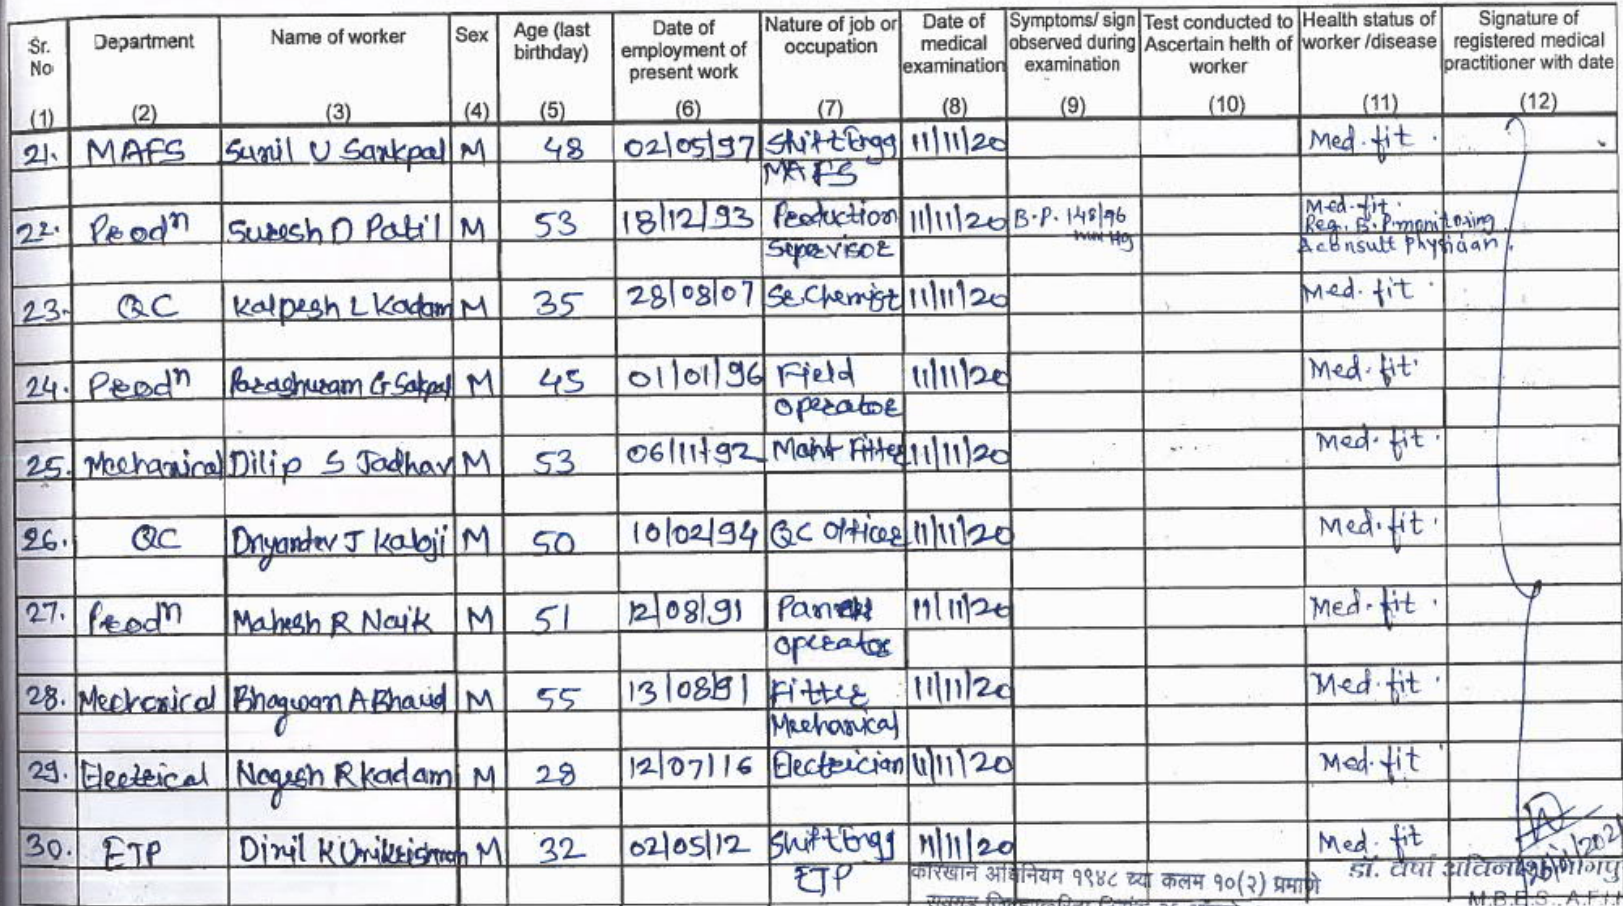 Sr. No (1) Department (2) Name of worker (3) Sex (4) Age (last birthday) (5) Date of employment of present work (6) Nature of job or occupation (7) Date of medical examination (8) Symptoms/ sign observed during examination (9) Test conducted to Ascertain helth of worker (10) Health status of worker /disease (11) Signature of registered medical practitioner with date (12)
21. MAFS Sunil U Sankpal M 48 02/05/97 Shift Engg 11/11/20 Med. fit.
MAFS
22. Prodn Suresh D Patil M 53 18/12/93 Production 11/11/20 B.P. 148/96 mm Hg Med. fit.
Supervisor Reg. B.P monitoring
& consult physician.
23. QC Kalpesh L Kadam M 35 28/08/07 Sr. Chemist 11/11/20 Med. fit.
24. Prodn Parashuram G Sakpal M 45 01/01/96 Field 11/11/20 Med. fit.
operator
25. Mechanical Dilip S Jadhav M 53 06/11/92 Maint Fitter 11/11/20 Med. fit.
26. QC Dnyandev J M 50 10/02/94 QC Officer 11/11/20 Med. fit.
27. Prodn Mahesh R Naik M 51 12/08/91 11/11/20 Med. fit.
operator
28. Mechanical Bhagwan A M 55 13/08/91 Fitter 11/11/20 Med. fit.
Mechanical
29. Electrical Nagesh R Kadam M 28 12/07/16 Electrician 11/11/20 Med. fit
30. ETP Dinil K Unikrishnan M 32 02/05/12 Shift Engg 11/11/20 Med. fit
ETP
कारखाने अधिनियम १९४८ च्या कलम १०(२) प्रमाणे
डॉ. वर्षा
M.B.B.S., A.F.I.H